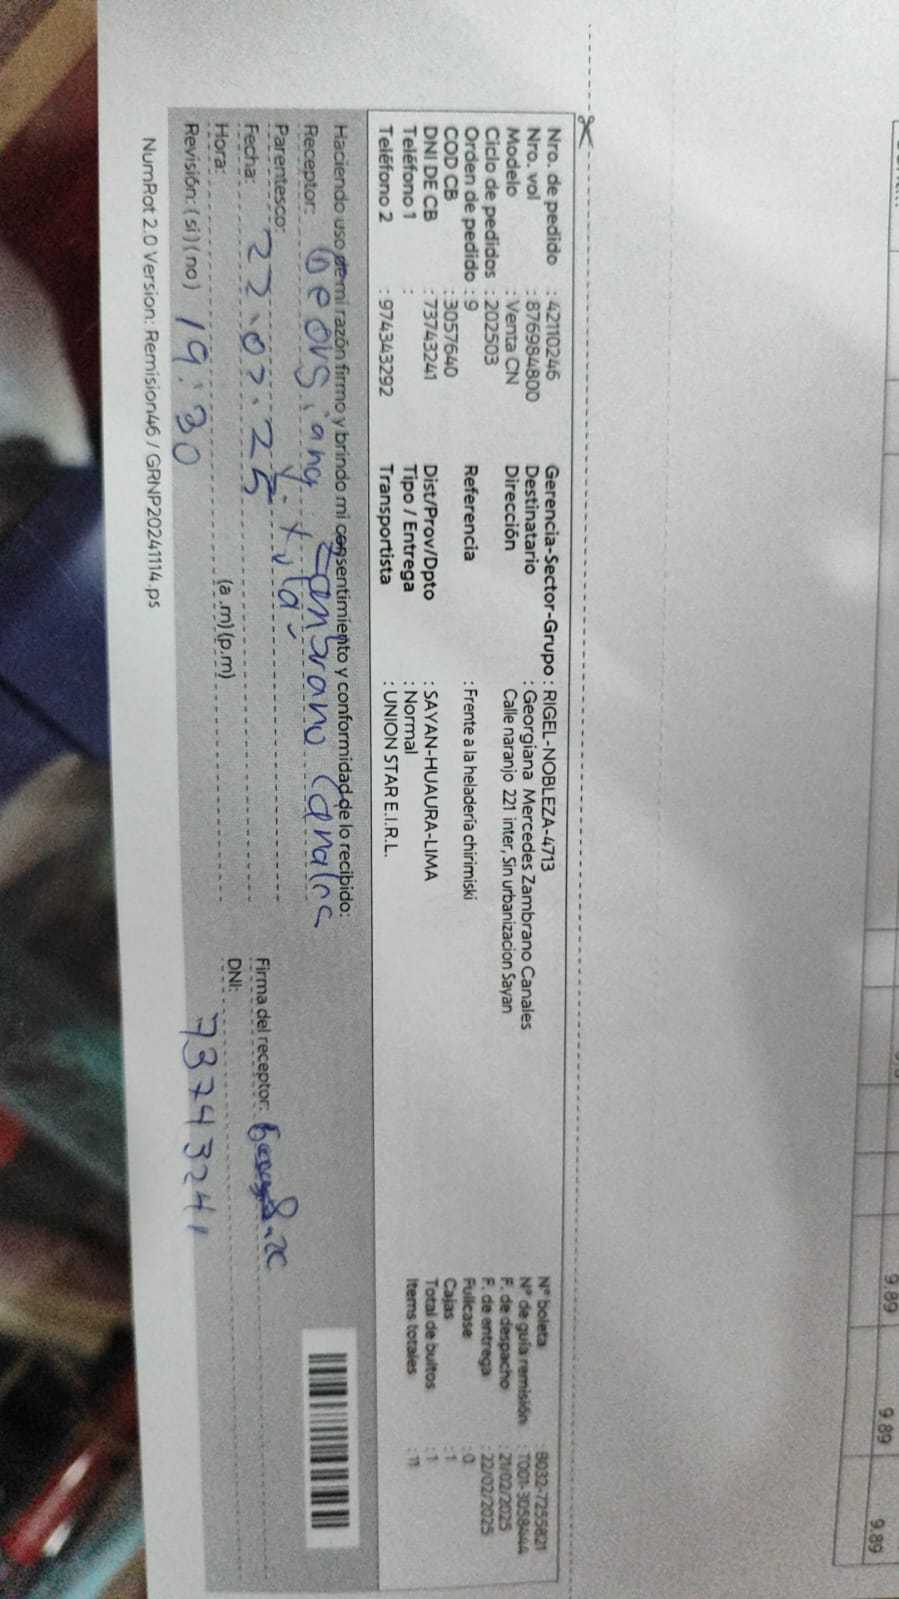 9.89 9.89 9.89
Nro. de pedido : 42110246 Gerencia-Sector-Grupo : RIGEL-NOBLEZA-4713 Nº boleta : B032-7255821
Nro. vol : 876984800 Destinatario : Georgiana Mercedes Zambrano Canales Nº de guía remisión : T001-3058444
Modelo : Venta CN Dirección Calle naranjo 221 inter, Sin urbanizacion Sayan F. de despacho : 21/02/2025
Ciclo de pedidos : 202503 F. de entrega : 22/02/2025
Orden de pedido : 9 Referencia : Frente a la heladería chirimiski Fullcase : 0
COD CB : 3057640 Cajas : 1
DNI DE CB : 73743241 Dist/Prov/Dpto : SAYAN-HUAURA-LIMA Total de bultos : 1
Teléfono 1 : Tipo / Entrega : Normal Items totales : 11
Teléfono 2 : 974343292 Transportista : UNION STAR E.I.R.L.
Haciendo uso de mi razón firmo y brindo mi consentimiento y conformidad de lo recibido:
Receptor: Georgiana Zambrano Canales
Parentesco: Firma del receptor:
Fecha: 22.02.25 DNI: 73743241
Hora: (a.m)(p.m)
Revisión: (si)(no) 19:30
NumRot 2.0 Version: Remision46 / GRNP20241114.ps